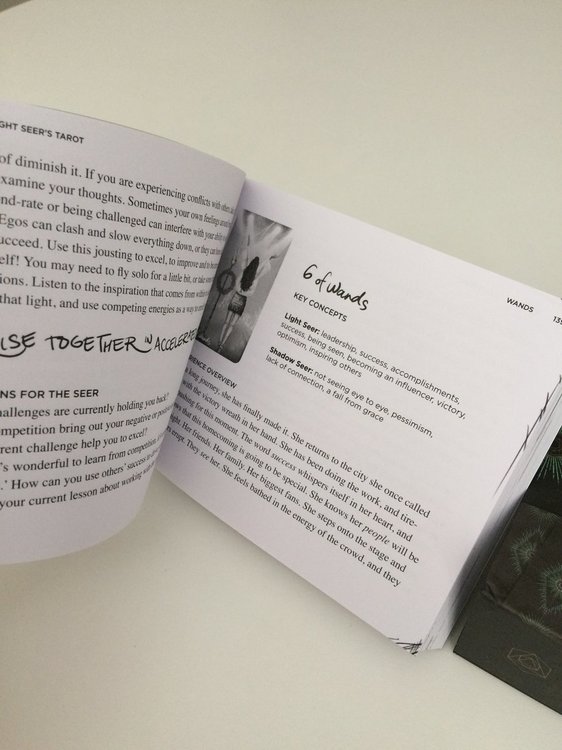 GHT SEER'S TAROT
of diminish it. If you are experiencing conflicts with others
xamine your thoughts. Sometimes your own feelings
nd-rate or being challenged can interfere with your
Egos can clash and slow everything down, or they can
ucceed. Use this jousting to excel, to improve and to
elf! You may need to fly solo for a little bit, or take
ions. Listen to the inspiration that comes from within
that light, and use competing energies as a way to
ISE TOGETHER IN
NS FOR THE SEER
hallenges are currently holding you back?
ompetition bring out your negative or positive
rent challenge help you to excel?
's wonderful to learn from competition,
.' How can you use others' success to
your current lesson about working with
WANDS 139
6 of Wands
KEY CONCEPTS
Light Seer: leadership, success, accomplishments,
success, being seen, becoming an influencer, victory,
optimism, inspiring others
Shadow Seer: not seeing eye to eye, pessimism,
lack of connection, a fall from grace
RIENCE OVERVIEW
a long journey, she has finally made it. She returns to the city she once called
with the victory wreath in her hand. She has been doing the work, and tire-
shing for this moment. The word success whispers itself in her heart, and
ows that this homecoming is going to be special. She knows her people will be
ight. Her friends. Her family. Her biggest fans. She steps onto the stage and
erupt. They see her. She feels bathed in the energy of the crowd, and they